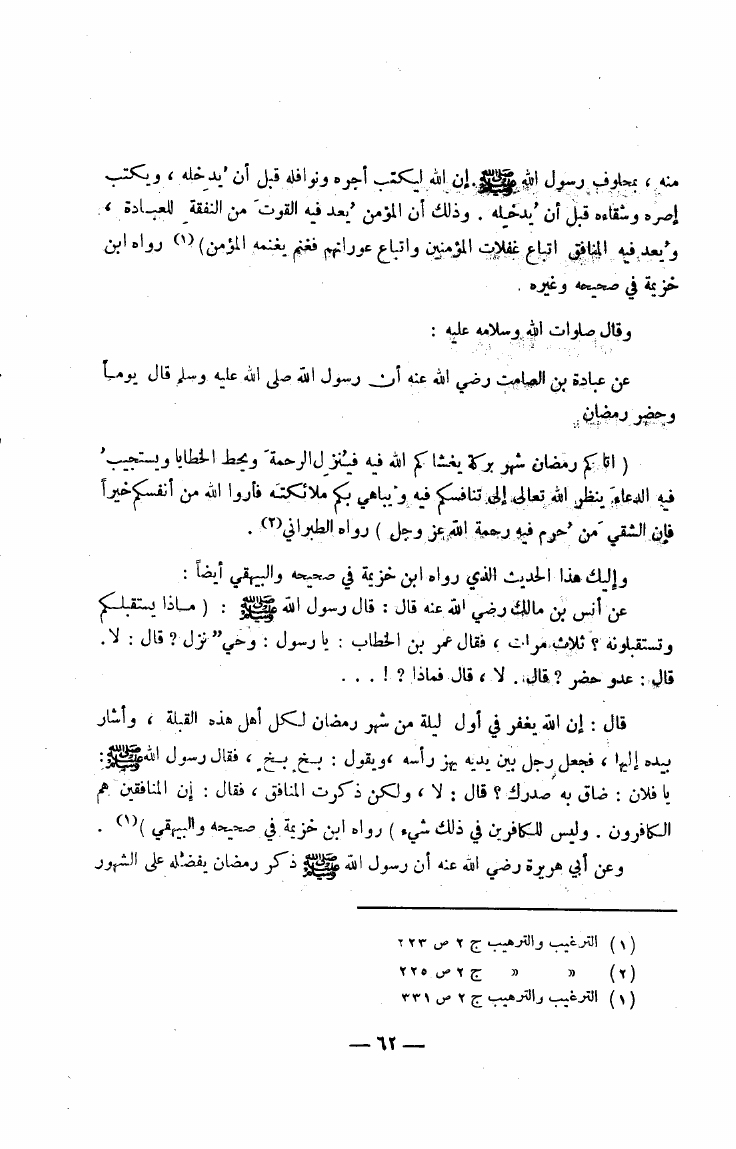 منه ، بمحلوف رسول الله ﷺ . إن الله ليكتب أجره ونوافله قبل أن يُدخله ، ويكتب
إصره وشقاءه قبل أن يُدخله . وذلك أن المؤمن يُعد فيه القوتَ من النفقة للعبادة ،
ويُعد فيه المنافق اتباع غفلات المؤمنين واتباع عوراتهم فغنم يغنمه المؤمن) (١) رواه ابن
خزيمة في صحيحه وغيره .
وقال صلوات الله وسلامه عليه :
عن عبادة بن الصامت رضي الله عنه أن رسول الله صلى الله عليه وسلم قال يوماً
وحضر رمضان
( اتاكم رمضان شهر بركة يغشاكم الله فيه فيُنزل الرحمةَ ويحط الخطايا ويستجيبُ
فيه الدعاءَ ينظر الله تعالى إلى تنافسكم فيه ويُباهي بكم ملائكته فأروا الله من أنفسكم خيراً
فإن الشقي مَن حُرم فيه رحمة الله عز وجل ) رواه الطبراني(٢) .
وإليك هذا الحديث الذي رواه ابن خزيمة في صحيحه والبيهقي أيضاً :
عن أنس بن مالك رضي الله عنه قال : قال رسول الله ﷺ : ( مـاذا يستقبلـكم
وتستقبلونه ؟ ثلاث مرات ، فقال عمر بن الخطاب : يا رسول : وحيٌ نزل ? قال : لا .
قال : عدو حضر ? قال . لا ، قال فماذا ? ! . . .
قال : إن الله يغفر في أول ليلة من شهر رمضان لكل أهل هذه القبلة ، وأشار
بيده إليها ، فجعل رجل بين يديه يهز رأسه ، ويقول : بـخٍ بـخٍ ، فقال رسول الله ﷺ :
يا فلان : ضاق به صدرك ؟ قال : لا ، ولكن ذكرت المنافق ، فقال : إن المنافقين هم
الكافرون . وليس للكافرين في ذلك شيء ) رواه ابن خزيمة في صحيحه والبيهقي )(١) .
وعن أبي هريرة رضي الله عنه أن رسول الله ﷺ ذكر رمضان يفضله على الشهور
(١) الترغيب والترهيب ج ٢ ص ٢٢٣
(٢) » » ج ٢ ص ٢٢٥
(١) الترغيب والترهيب ج ٢ ص ٣٣١
— ٦٢ —